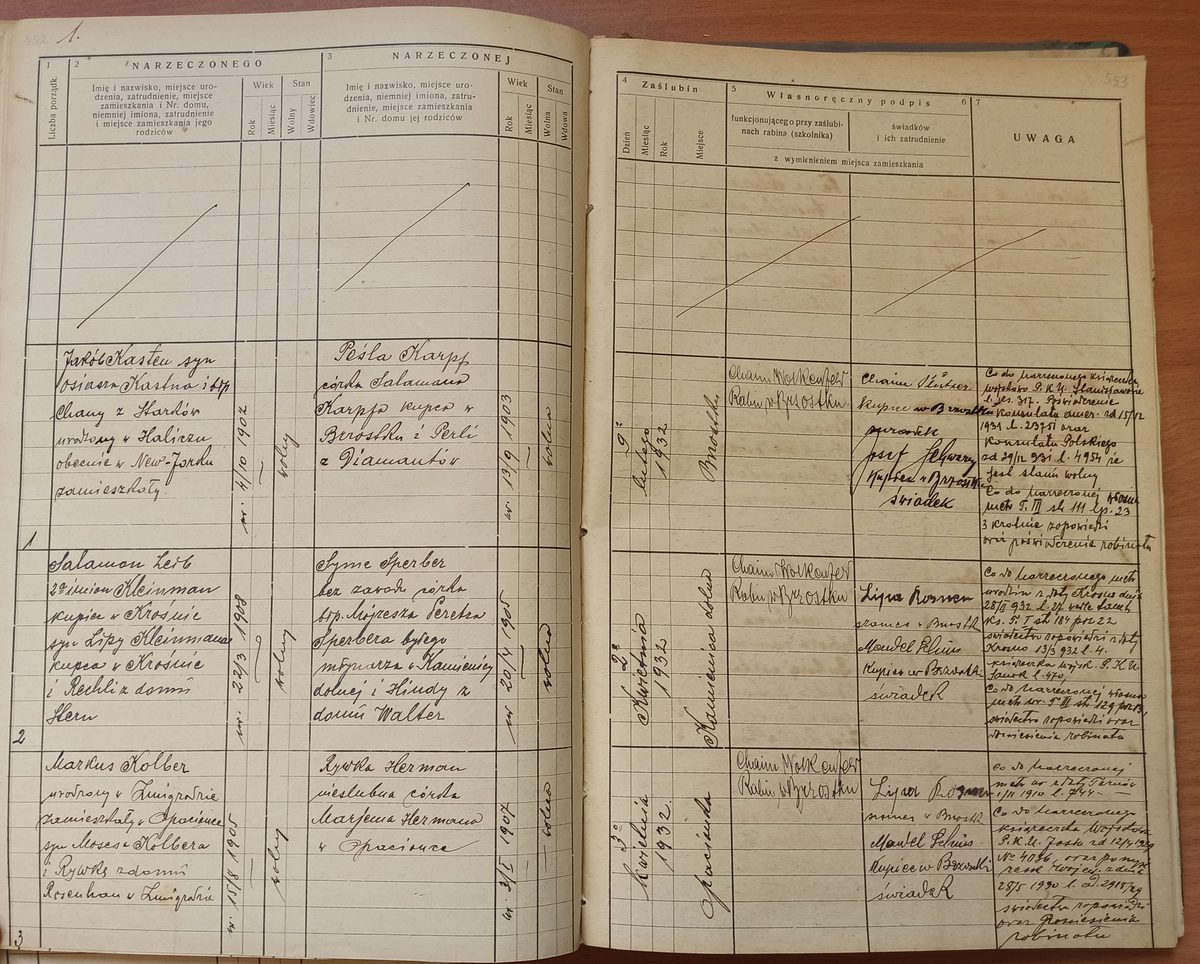 552
1.
1
2
NARZECZONEGO
3
NARZECZONEJ
Liczba porządk.
Imię i nazwisko, miejsce uro-
dzenia, zatrudnienie, miejsce
zamieszkania i Nr. domu,
niemniej imiona, zatrudnienie
i miejsce zamieszkania jego
rodziców
Wiek
Stan
Rok
Miesiąc
Wolny
Wdowiec
Imię i nazwisko, miejsce uro-
dzenia, niemniej imiona, zatru-
dnienie, miejsce zamieszkania
i Nr. domu jej rodziców
Wiek
Stan
Rok
Miesiąc
Wolna
Wdowa
Jakób Kasten syn
Osiasza Kastna i
Chany z Starków
urodzony w Haliczu
obecnie w New-Jorku
zamieszkały.
ur. 4/10 1902
wolny
Pesla Karpf
córka Salamona
Karpfa kupca w
Brzostku i Perli
z Diamantów
ur 13/9 1903
wolna
1
Salamon Leib
2ga imion Kleinman
kupiec w Krośnie
syn Lipy Kleinmana
kupca w Krośnie
i Rechli z domu
Stern
ur. 22/3 1908
wolny
Syme Sperber
bez zawodu córka
Mojżesza Peretza
Sperbera byłego
młynarza w Kamienicy
dolnej i Hindy z
domu Walter
ur 20/4 1905
wolna
2
Markus Kolber
urodzony w Zmigrodzie
zamieszkały w Opacionce
syn Mosesa Kolbera
i Rywki z domu
Rosenhan w Zmigrodzie
ur. 15/8 1905
wolny
Rywka Herman
nieślubna córka
Marjema Hermana
w Opacionce
ur. 3/I 1907
wolna
3
553
4
Zaślubin
5
Własnoręczny podpis
6
7
Dzień
Miesiąc
Rok
Miejsce
funkcjonującego przy zaślubi-
nach rabina (szkolnika)
świadków
i ich zatrudnienie
z wymienieniem miejsca zamieszkania
UWAGA
9
lutego
1932
Brzostku
Chaim Wolkenfeld
Rabin w Brzostku
Chaim
kupiec w Brzostku
Josef Schwarz
Kupiec w Brzostk.
świadek
Co do narzeczonego książeczka
wojskowa P.K.U. Stanisławów
l. 317. Poświadczenie
konsulatu amer. zd 15/12
1931 l. 23751 oraz
konsulatu Polskiego
zd 29/12 931 l. 4954 że
jest stanu wolny
Co do narzeczonej
metr T. III str 111 lp. 23
3 krotnie zapowiedzi
oraz poświadczenie rabinatu
2
Kwietnia
1932
Kamienica dolna
Chaim Wolkenfeld
Rabin w Brzostku
Lipa
w Brzostk
Mandel
Kupiec w Brzostku
świadek
Co do narzeczonego metr
urodzin z daty Krosno dnia
28/II 932 l. 27
ks. T. I str 184 poz 22
świadectwo zapowiedzi z daty
Krosno 13/3 932 l. 4.
książeczka wojsk. P.K.U.
Sanok l. 470,
Co do narzeczonej
metr ur. T. III str 129
świadectwo zapowiedzi oraz
doniesienia rabinatu
3
kwietnia
1932.
Opacionka
Chaim Wolkenfeld
Rabin w Brzostku
Lipa
w Brzostk
Mandel
Kupiec w Brzostku
świadek
Co do narzeczonej
metr. ur. z daty Tarnów
1910 l. 744
Co do narzeczonego
książeczka Wojskowa
P.K.U. Jasło
No 4096, oraz
28/5 1930 l.
świadectwo zapowiedzi
oraz Doniesienia
rabinatu